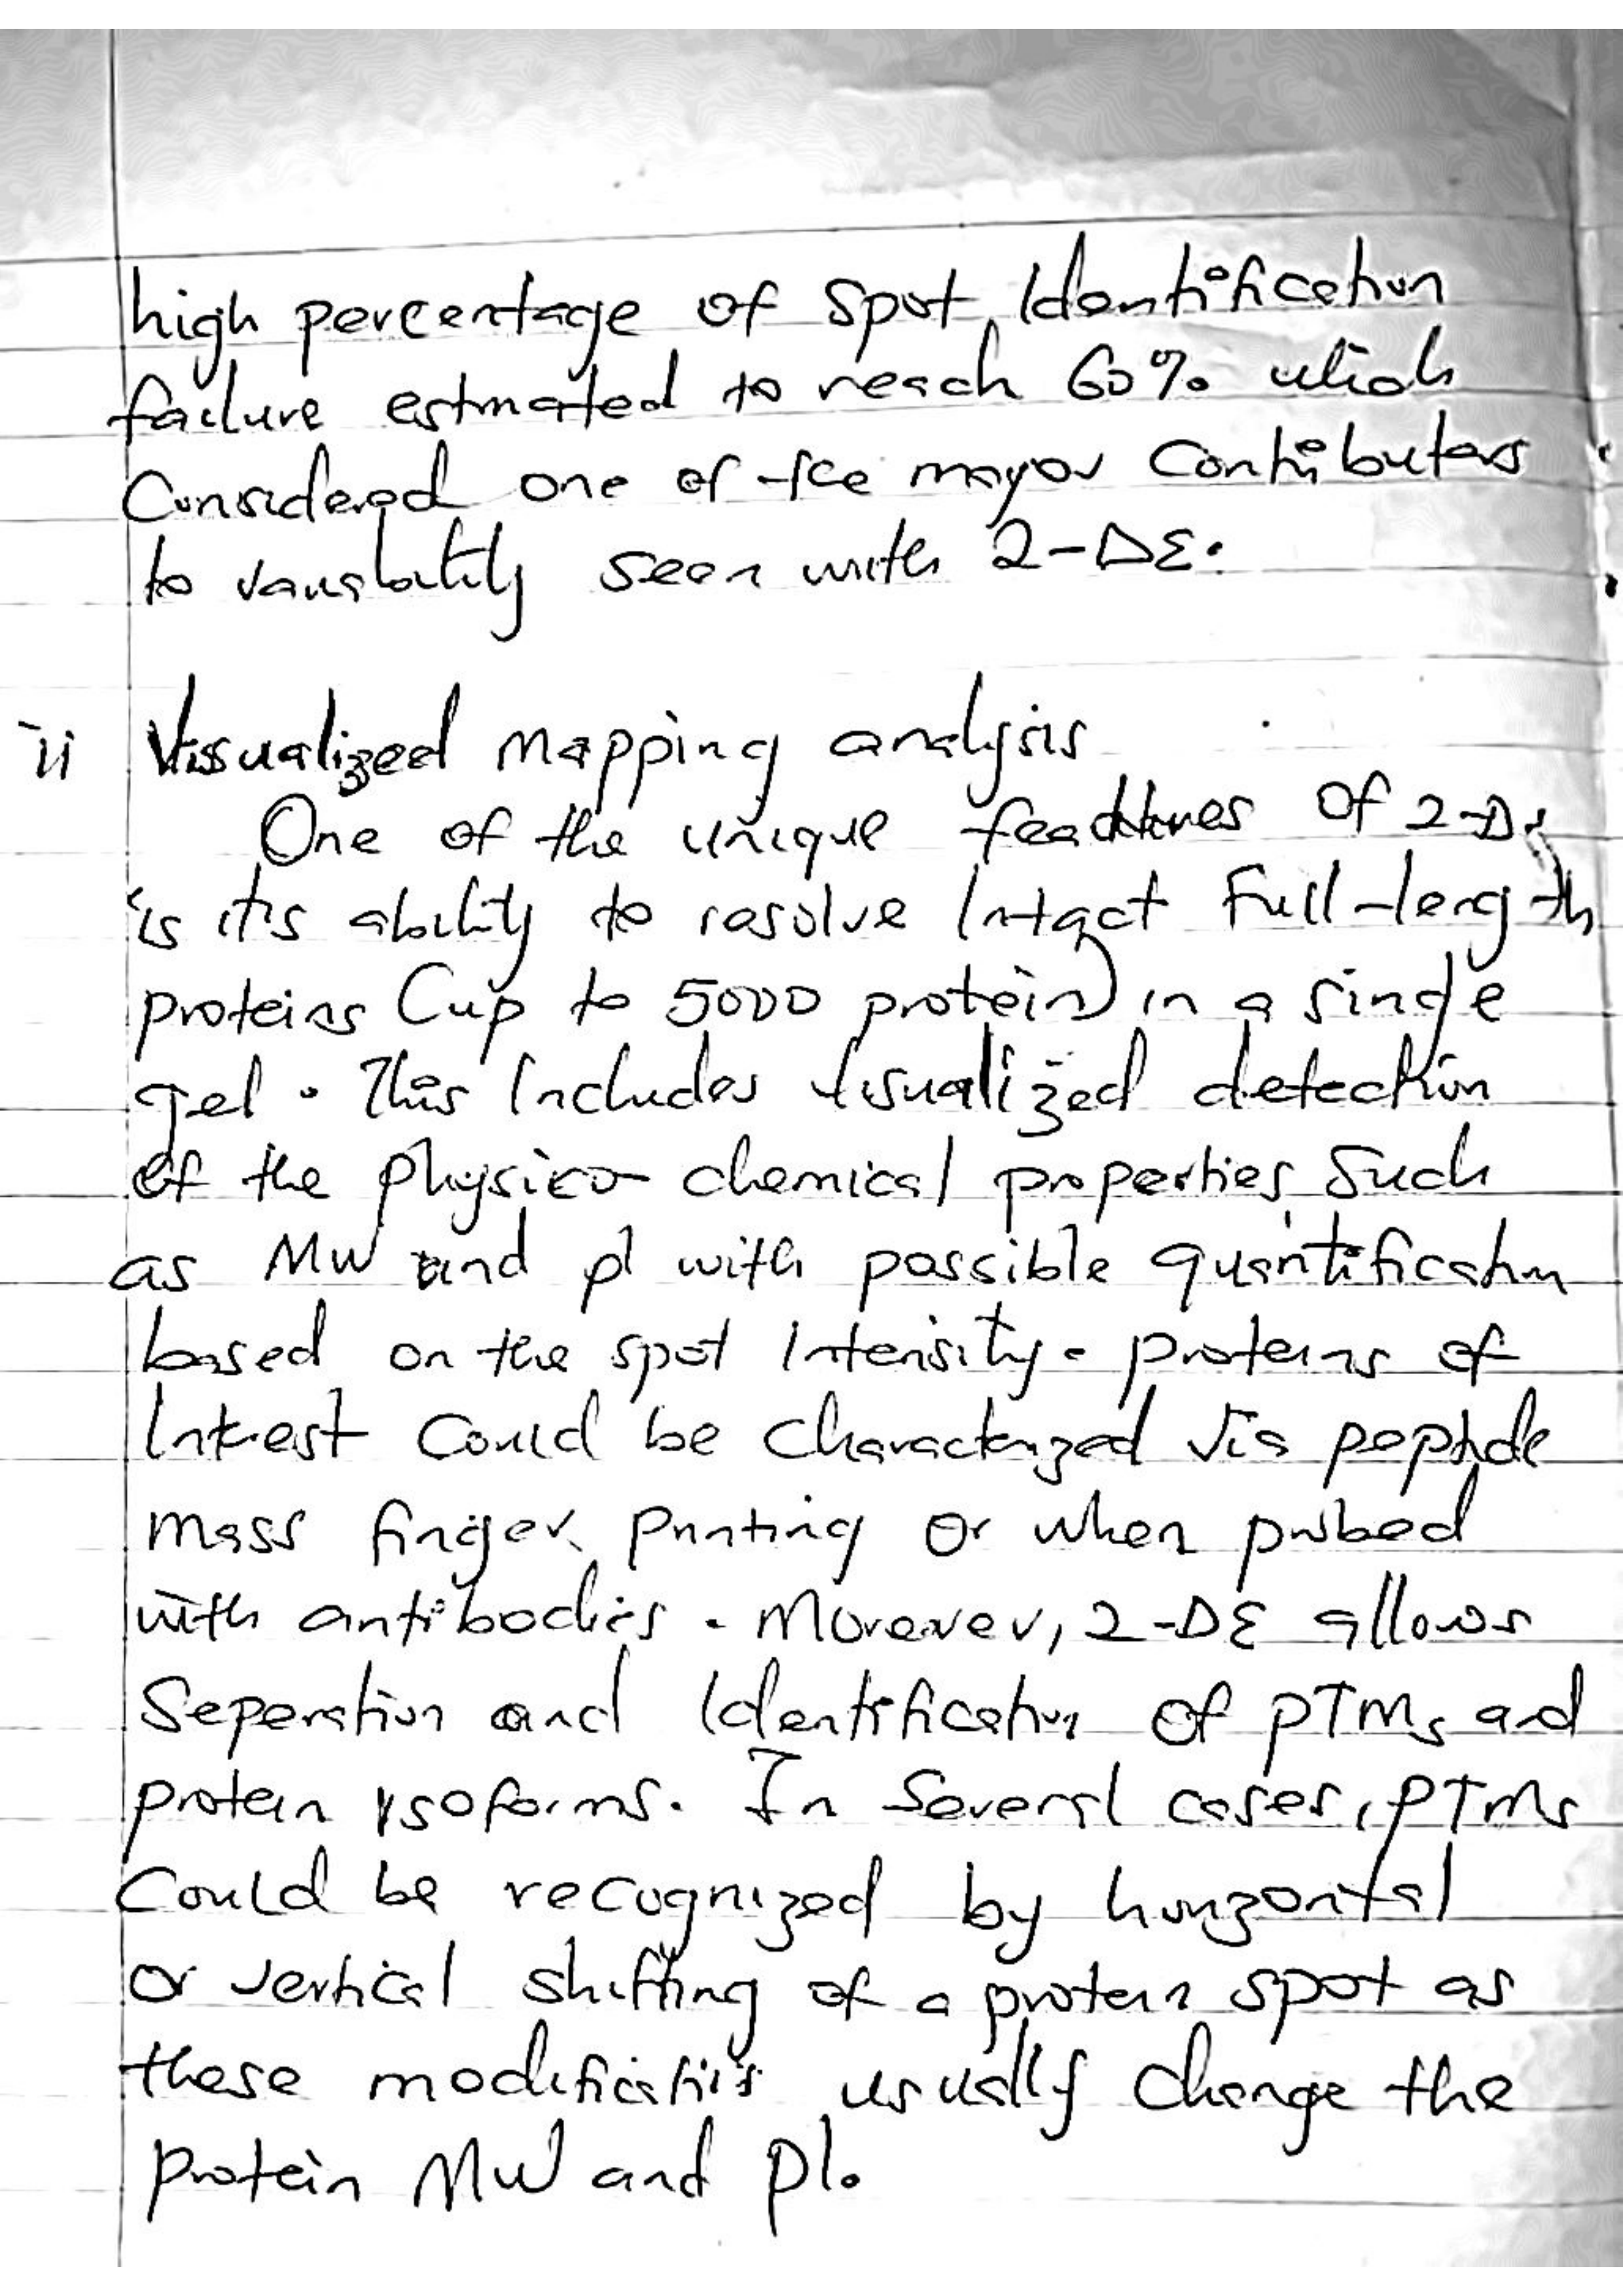 high percentage of spot Identification
failure estmated to reach 60% which
Considered one of the mayor Contributors
to variability seen with 2-DE.
ii Visualized mapping analysis
One of the unique feadtures of 2-DE
is it's ability to resolve Intact Full-length
proteins (up to 5000 protein) in a single
gel. This Includes visualized detection
of the physico-chemical properties such
as MW and pI with possible quantification
based on the spot Intensity. proteins of
Interest Could be characterized via peptide
mass finger printing or when probed
with antibodies. Moreover, 2-DE allows
Seperation and Identification of PTMs and
protein isoforms. In Several cases, PTMs
Could be recognized by horizontal
or vertical shifting of a protein spot as
these modifications usually change the
protein MW and pI.